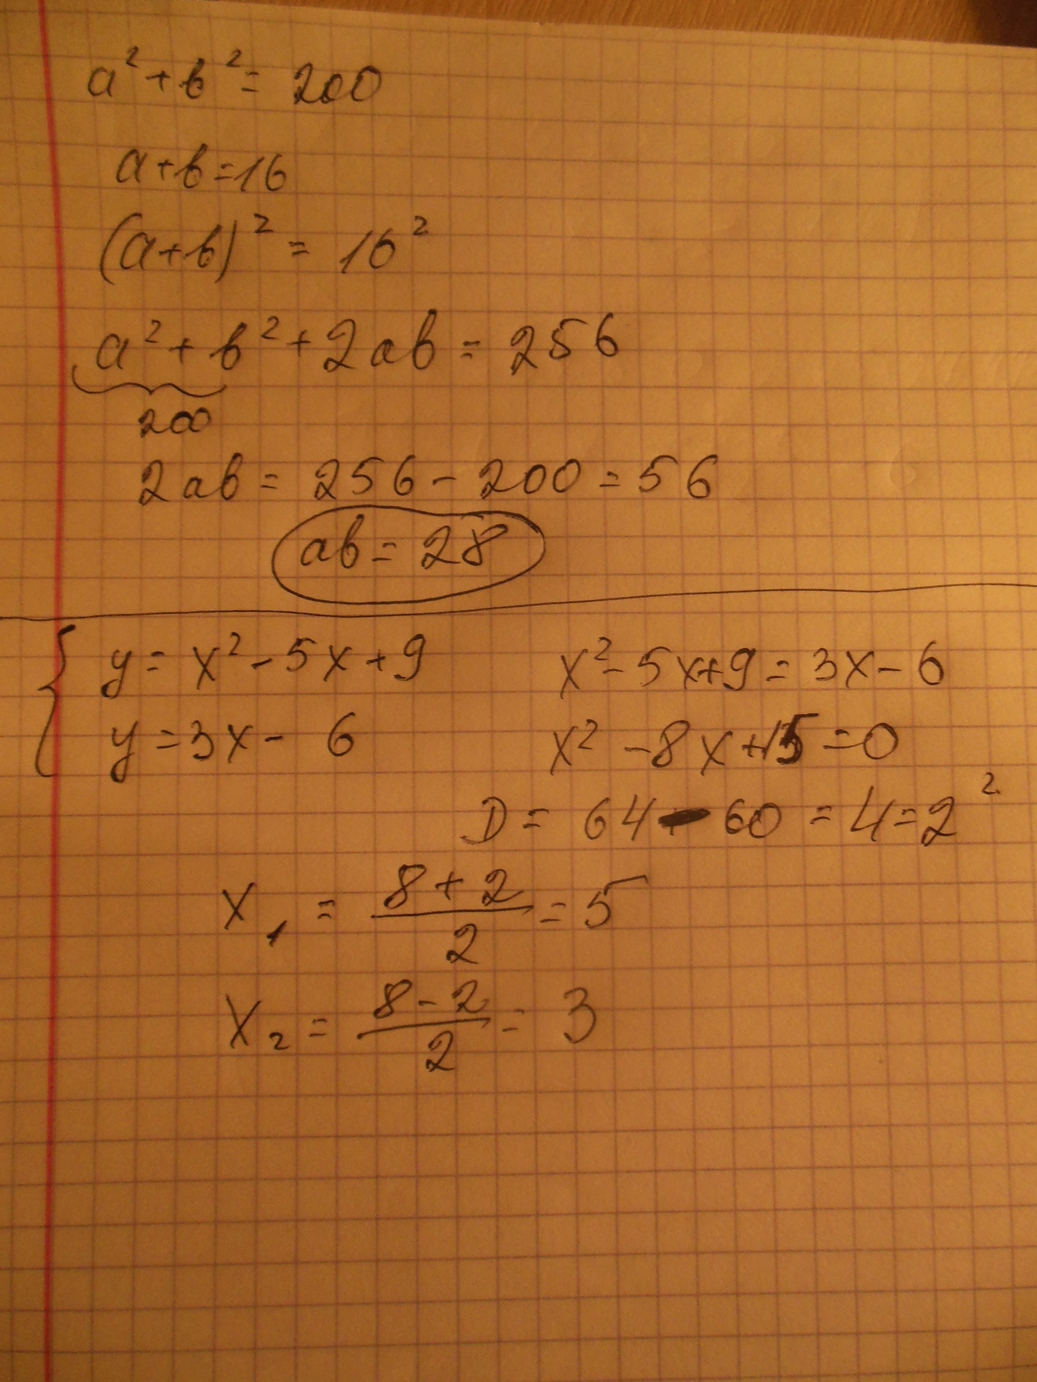 a² + b² = 200
a+b=16
(a+b)² = 16²
a² + b² + 2ab = 256
200
2ab = 256 - 200 = 56
ab = 28
{ y = x² - 5x + 9
x² - 5x + 9 = 3x - 6
y = 3x - 6
x² - 8x + 15 = 0
D = 64 - 60 = 4 = 2²
x₁ = (8+2)/2 = 5
x₂ = (8-2)/2 = 3